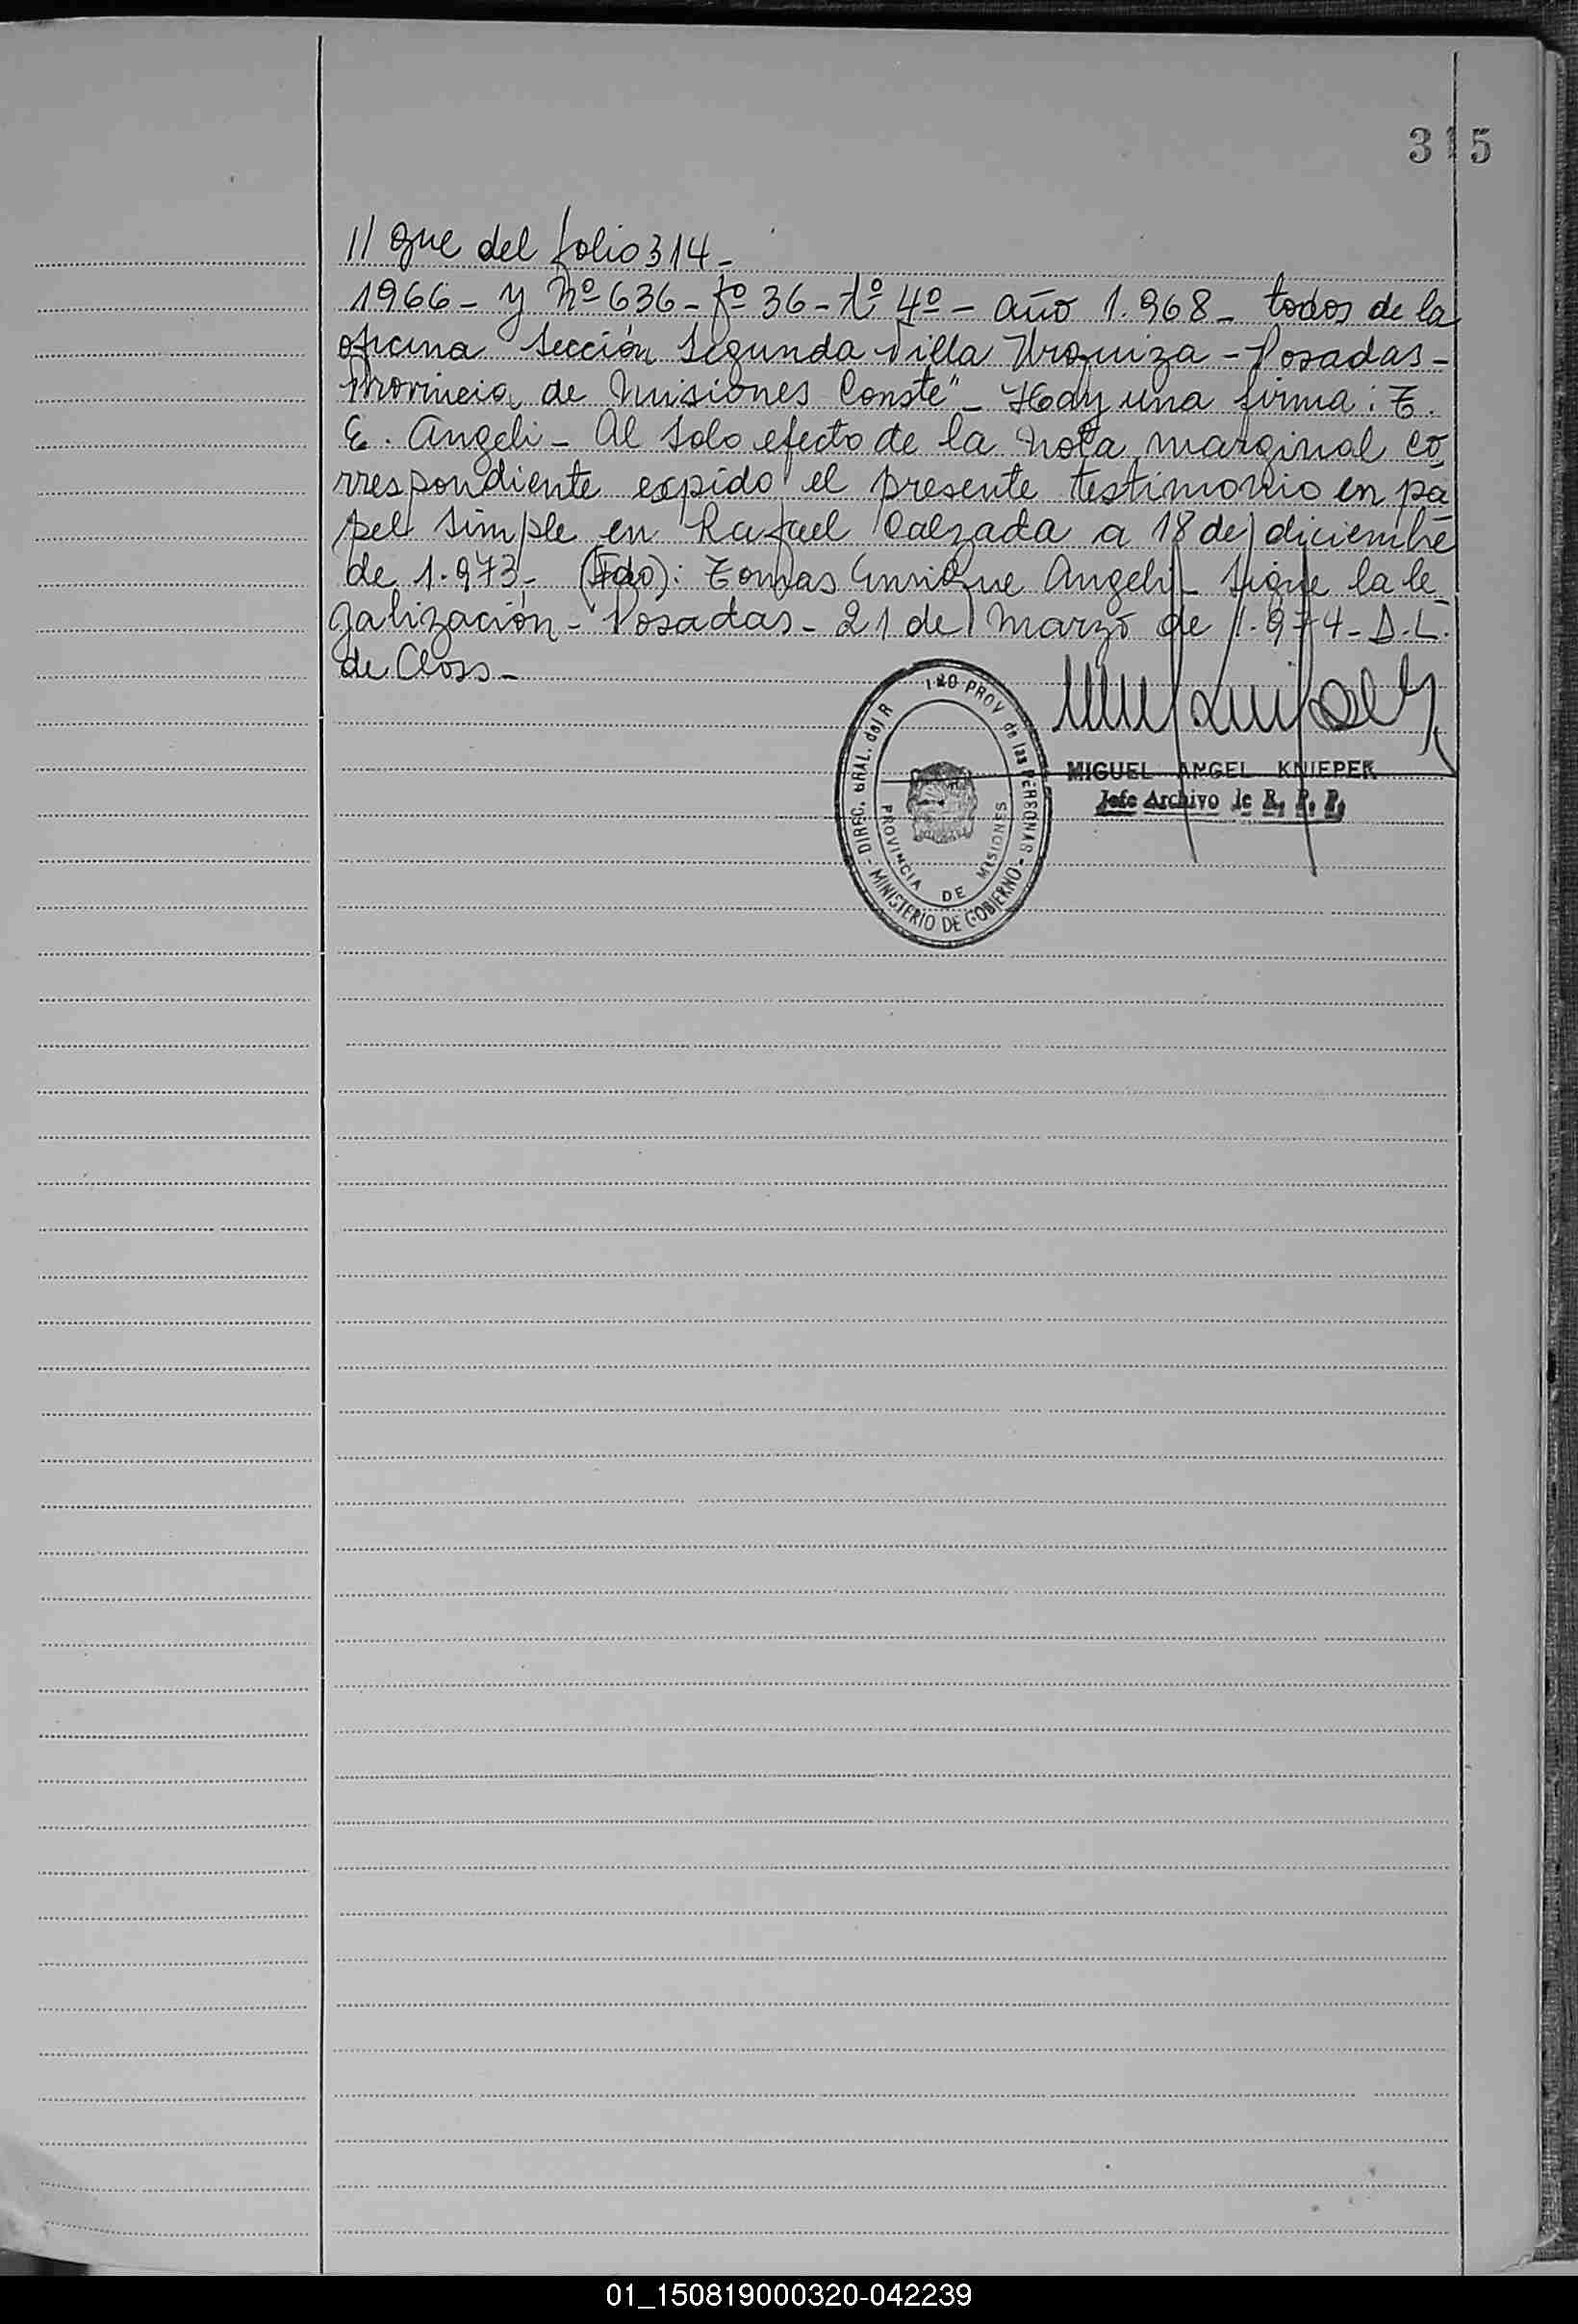 315
// gue del folio 314_
1966_ y Nº 636_ fº 36_ tº 4º _ año 1.968_ todos de la
oficina Sección Segunda Villa Urquiza _ Posadas _
Provincia de Misiones Conste" _ Hay una firma: T.
E. Angeli _ Al solo efecto de la nota marginal co_
rrespondiente expido el presente testimonio en pa
pel simple en Rafael Calzada a 18 de diciembre
de 1.973_ (Fdo): Tomas Enrique Angeli_ Sigue la le_
galización _ Posadas _ 21 de Marzo de 1.974_ D. L.
de Closs _
DIREC. GRAL. del R PROV de las PERSONAS
PROVINCIA DE MISIONES
MINISTERIO DE GOBIERNO
MIGUEL ANGEL KNIEPER
Jefe Archivo de R. P. P.
01_150819000320-042239